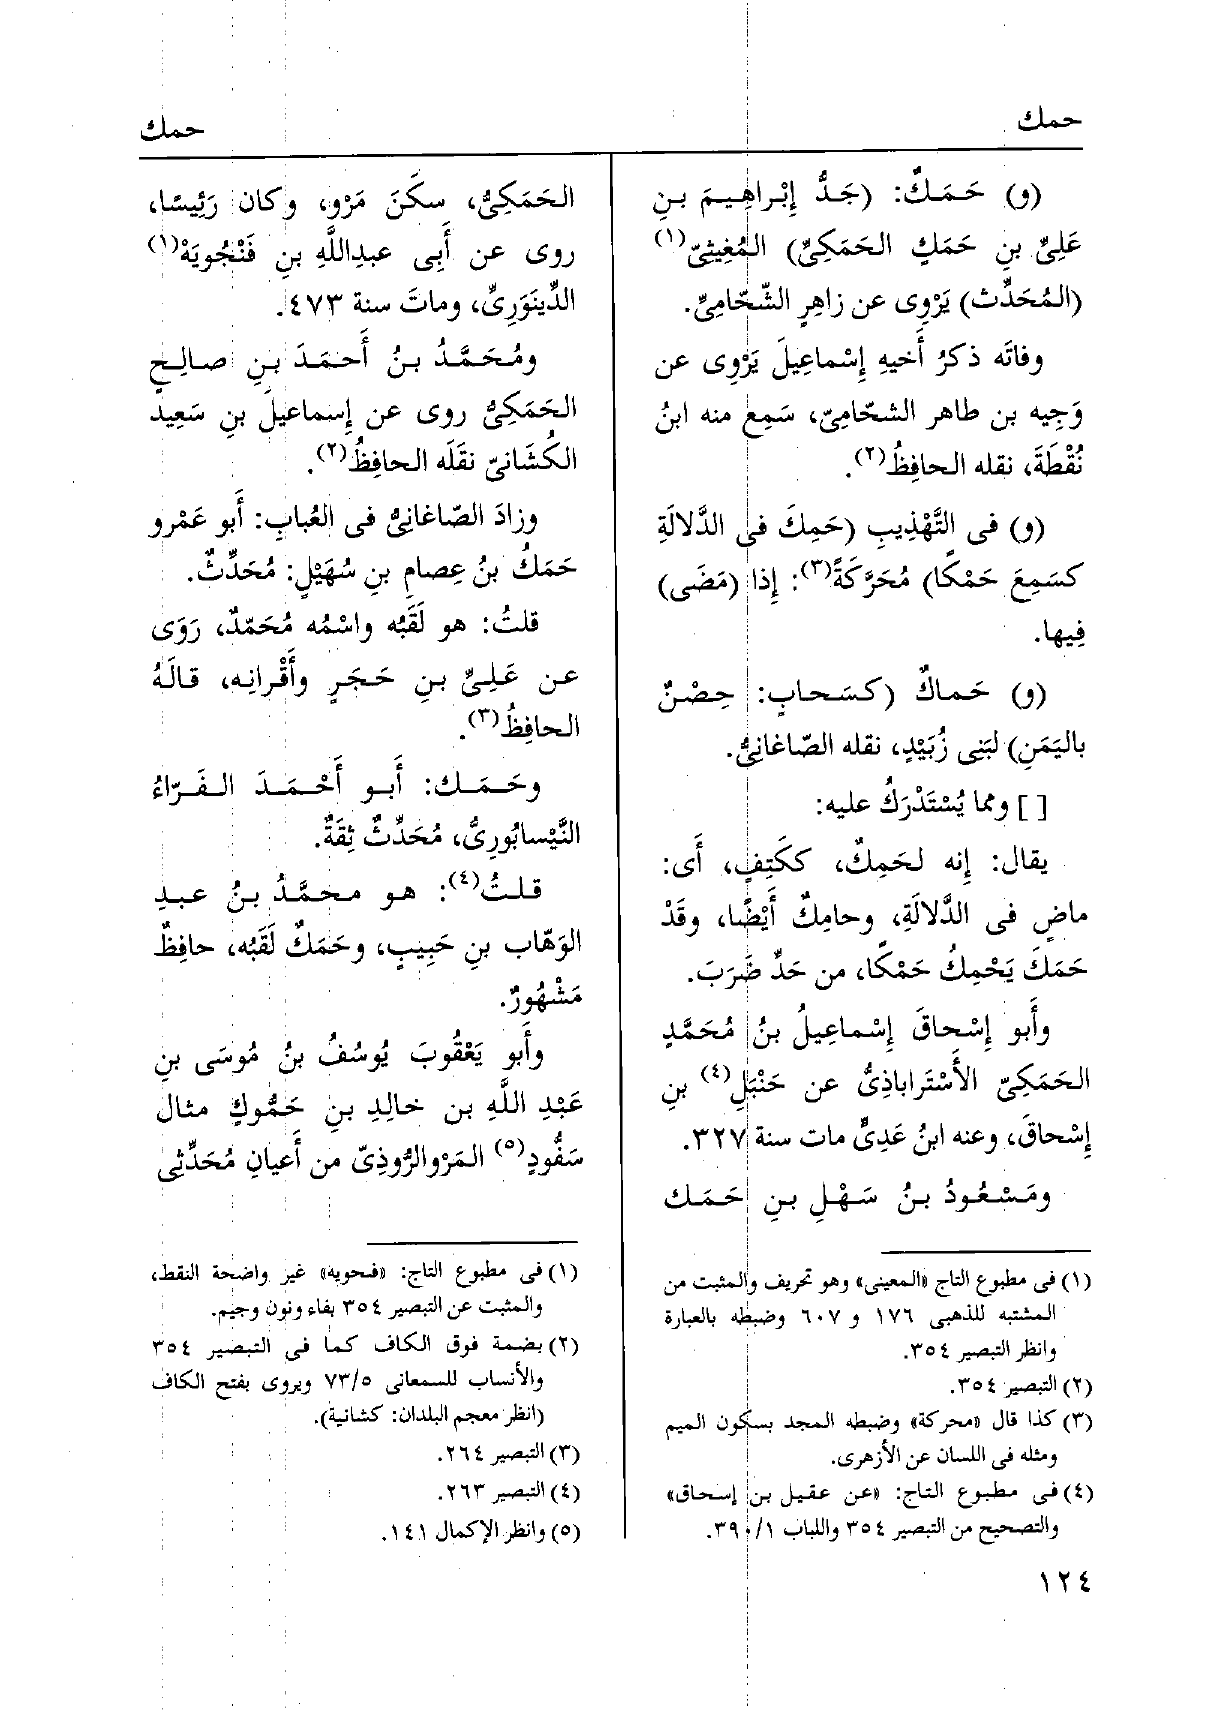 حمك
حمك
(و) حَمَكٌ: (جَدُّ إِبْراهِيمَ بنِ
عَلِيِّ بنِ حَمَكٍ الحَمَكِيِّ) المُغِيثِيّ(١)
(المُحَدِّث) يَرْوِى عن زاهِرٍ الشّحّامِيِّ.
وفاتَه ذكرُ أَخيهِ إِسْماعِيلَ يَرْوِى عن
وَجِيه بن طاهر الشحّامِيّ، سَمِع منه ابنُ
نُقْطَةَ، نقله الحافِظُ(٢).
(و) فى التَّهْذِيبِ (حَمِكَ فى الدَّلالَةِ
كسَمِعَ حَمْكًا) مُحَرَّكَةً(٣): إِذا (مَضَى)
فِيها.
(و) حَماكٌ (كسَحابٍ: حِصْنٌ
باليَمَنِ) لبَنِى زُبَيْدٍ، نقله الصّاغانِيُّ.
[ ] ومما يُسْتَدْرَكُ عليه:
يقال: إِنه لحَمِكٌ، ككَتِفٍ، أَى:
ماضٍ فى الدَّلالَةِ، وحامِكٌ أَيْضًا، وقَدْ
حَمَكَ يَحْمِكُ حَمْكًا، من حَدِّ ضَرَبَ.
وأَبو إِسْحاقَ إِسْماعِيلُ بنُ مُحَمَّدٍ
الحَمَكِيّ الأَسْتَراباذِىُّ عن حَنْبَلِ(٤) بنِ
إِسْحاقَ، وعنه ابنُ عَدِىٍّ مات سنة ٣٢٧.
ومَسْعُودُ بنُ سَهْلِ بنِ حَمَك
(١) فى مطبوع التاج «المعينى» وهو تحريف والمثبت من
المشتبه للذهبى ١٧٦ و ٦٠٧ وضبطه بالعبارة
وانظر التبصير ٣٥٤.
(٢) التبصير ٣٥٤.
(٣) كذا قال «محركة» وضبطه المجد بسكون الميم
ومثله فى اللسان عن الأزهرى.
(٤) فى مطبوع التاج: «عن عقيل بن إسحاق»
والتصحيح من التبصير ٣٥٤ واللباب ٣٩٠/١.
١٢٤
الحَمَكِيُّ، سكَنَ مَرْو، وكان رَئِيسًا،
روى عن أَبِى عبدِاللَّهِ بنِ فَنْجُويَهْ(١)
الدِّينَوَرِىِّ، وماتَ سنة ٤٧٣.
ومُحَمَّدُ بنُ أَحمَدَ بنِ صالِحٍ
الحَمَكِىُّ روى عن إِسماعيلَ بنِ سَعِيد
الكُشانىّ نقَلَه الحافِظُ(٢).
وزادَ الصّاغانِىُّ فى العُبابِ: أَبو عَمْرو
حَمَكُ بنُ عِصامِ بنِ سُهَيْلٍ: مُحَدِّثٌ.
قلتُ: هو لَقَبُه واسْمُه مُحَمّدٌ، رَوَى
عن عَلِىِّ بنِ حَجَرٍ وأَقْرانِه، قالَهُ
الحافِظُ(٣).
وحَمَك: أَبو أَحْمَدَ الفَرّاءُ
النَّيْسابُورِىُّ، مُحَدِّثٌ ثِقَةٌ.
قلتُ(٤): هو محمَّدُ بنُ عبدِ
الوَهّاب بنِ حَبِيبٍ، وحَمَكٌ لَقَبُه، حافِظٌ
مَشْهُورٌ.
وأَبو يَعْقُوبَ يُوسُفُ بنُ مُوسَى بنِ
عَبْدِ اللَّهِ بن خالِدِ بنِ حَمُّوكٍ مثال
سَفُّودٍ(٥) المَرْوالرُّوذِىّ من أَعيانِ مُحَدِّثِى
(١) فى مطبوع التاج: «فحويه» غير واضحة النقط،
والمثبت عن التبصير ٣٥٤ بفاء ونون وجيم.
(٢) بضمة فوق الكاف كما فى التبصير ٣٥٤
والأنساب للسمعانى ٧٣/٥ ويروى بفتح الكاف
(انظر معجم البلدان: كشانية).
(٣) التبصير ٢٦٤.
(٤) التبصير ٢٦٣.
(٥) وانظر الإكمال ١٤١.